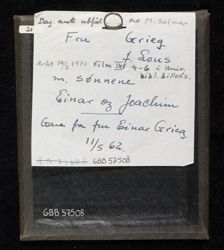 av M. Selmer
21
Fru Grieg
f. Sous
Avfot 14/5 1970 Film IXI 4-6 i Univ.
bibl. billeds.
m. sønnene
Einar og Joachim
Gave fra fru Einar Grieg.
11/5 62.
GBB 57508
GBB 57508